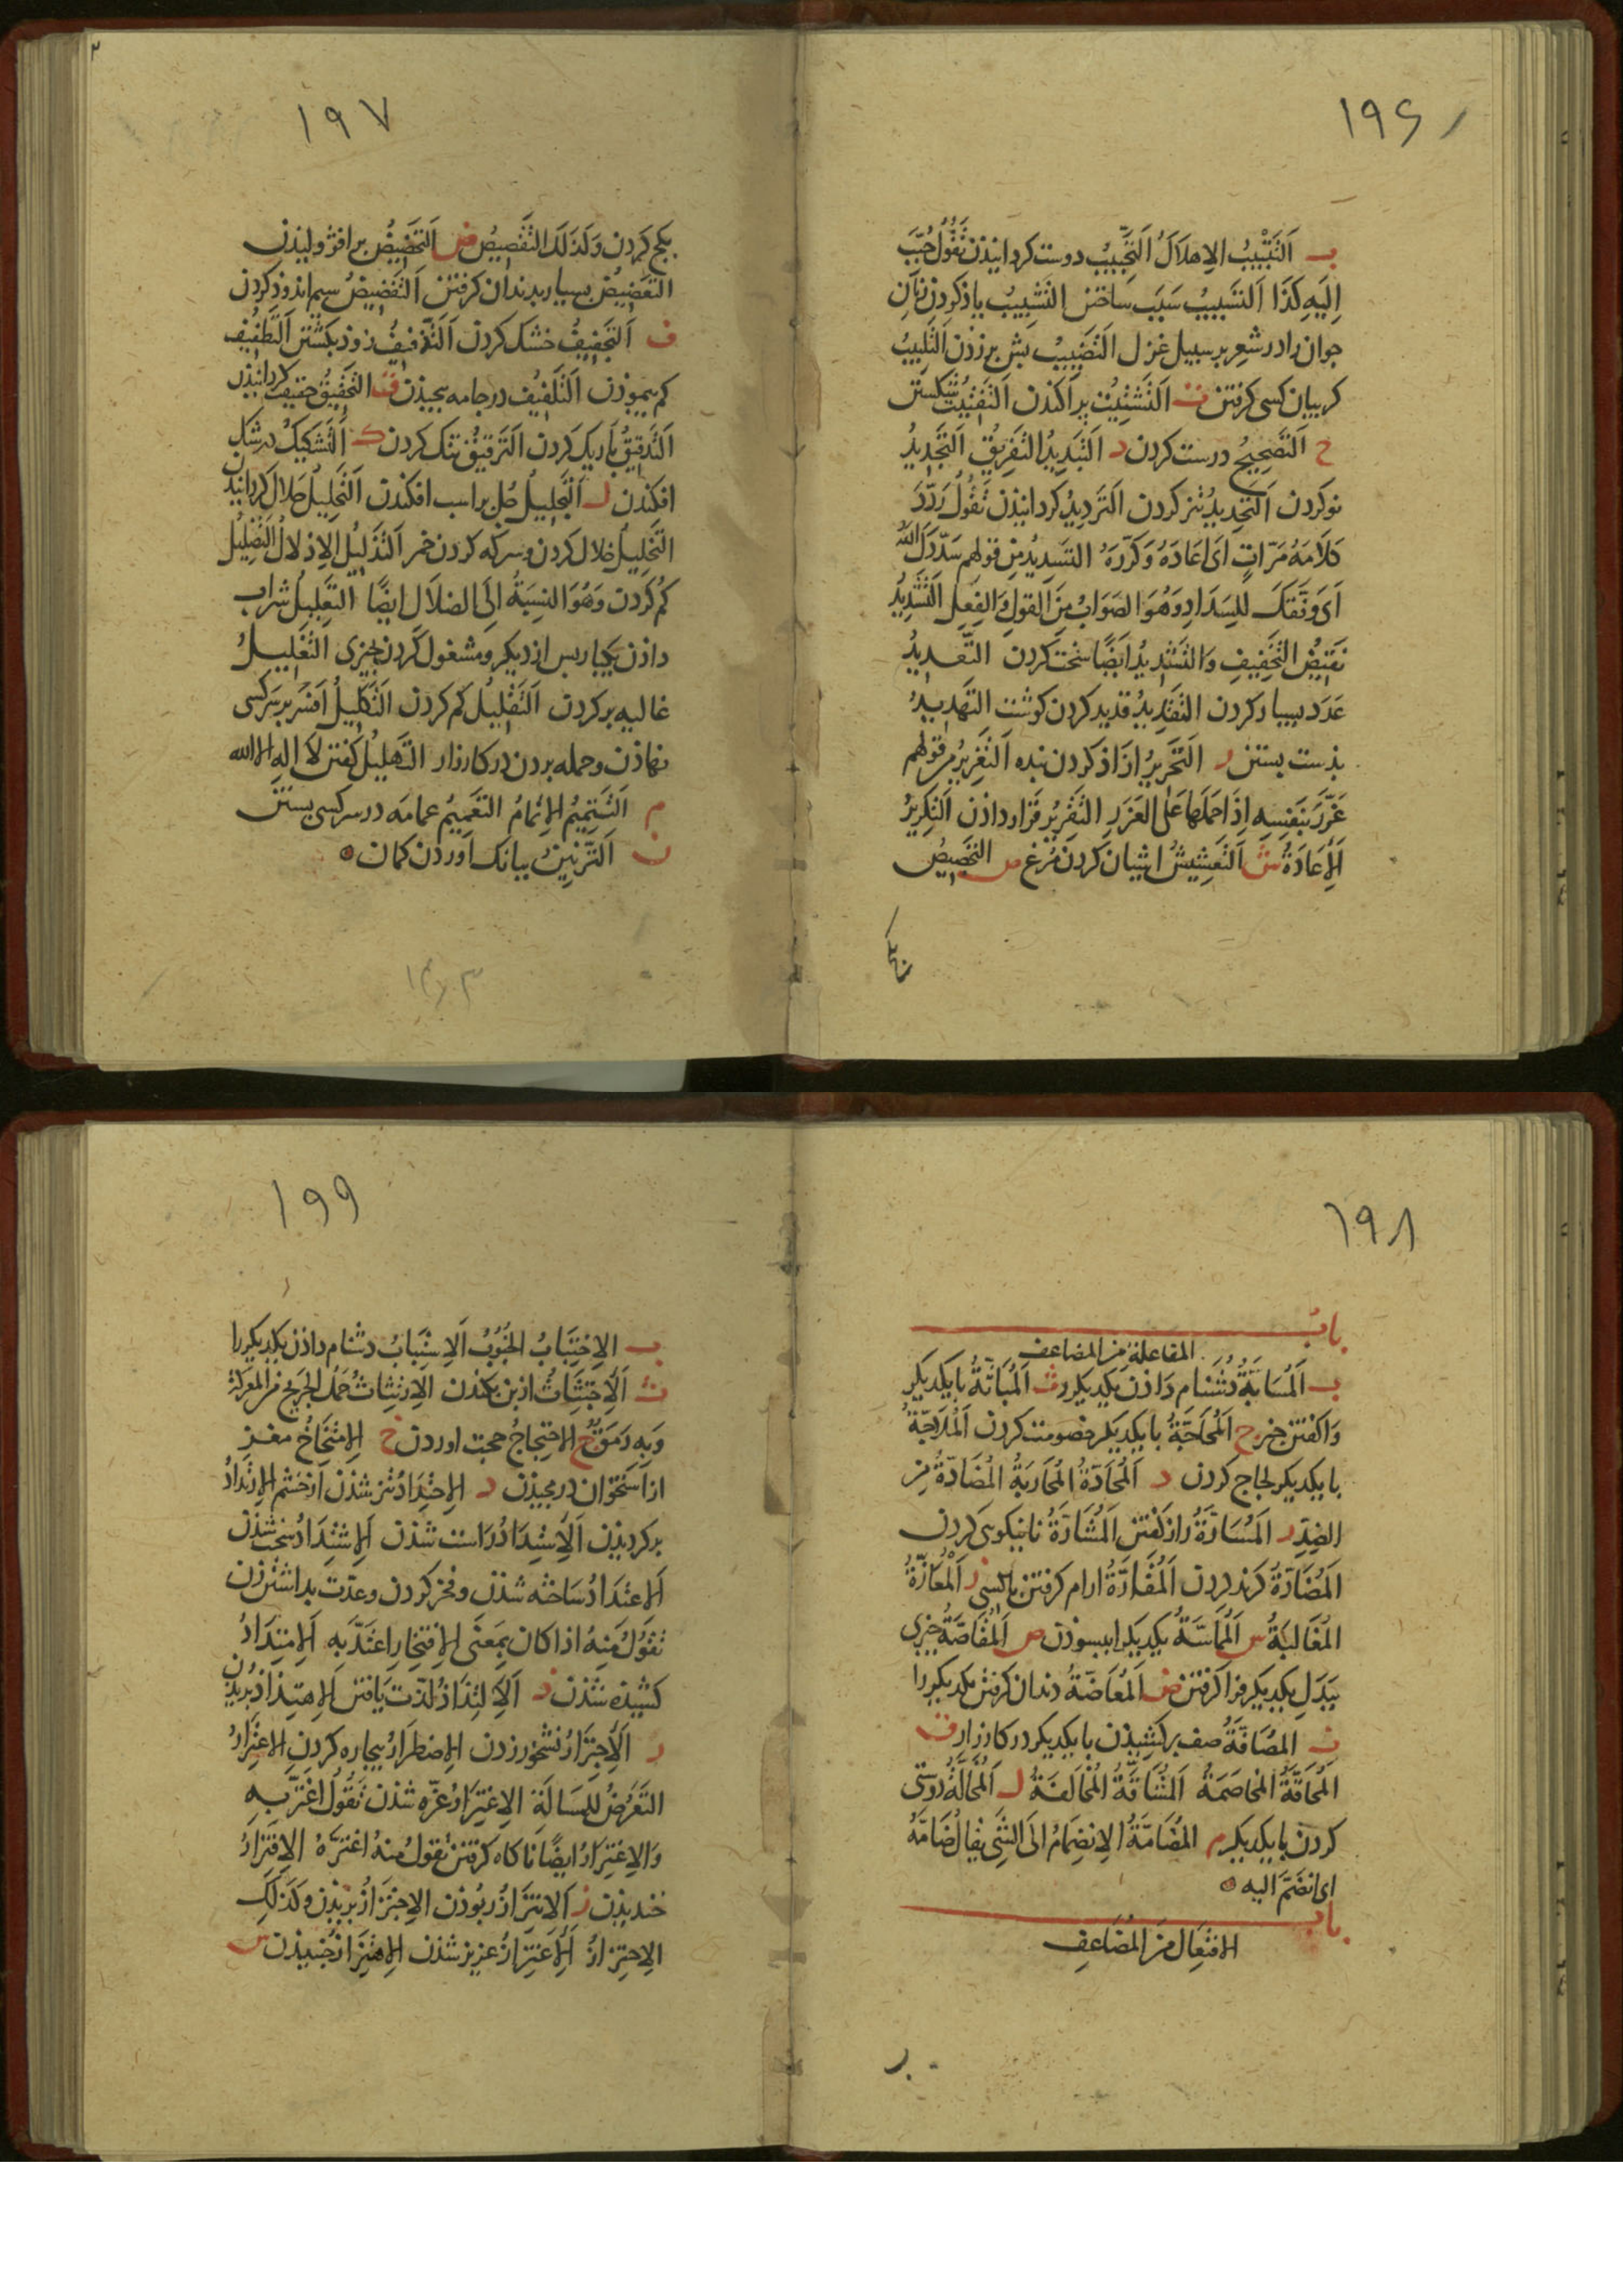 ۱۹۶
ب اَلتَّتْبِيبُ الاِهلَاكُ اَلتَّحْبِيبُ دوست كردانيذن تَقُولُ حُبِّبَ
اِلَيهِ كَذَا اَلتسَبيبُ سَبَب ساختن التَشبِيبُ ياذ كردن زنان
جوان را در شعر بر سبيل غزل التَضبِيبُ بش برزدن التَلبِيبُ
كريبان كسى كرفتن ت اَلتَشتِيتُ پراكندن اَلتَفتِيتُ شكستن
ح اَلتَصحِيحُ درست كردن د اَلتَبدِيدُ التَفرِيقُ اَلتَجدِيدُ
نو كردن اَلتَحدِيدُ تيز كردن اَلتَردِيدُ كردانيذن تَقُولُ رَدَّدَ
كَلَامَهُ مَرّاتٍ اَى اَعَادَهُ وَكَرَّرَهُ التَسدِيدُ مِن قولهم سَدَّدَكَ اللهُ
اَى وَفَّقَكَ لِلسَدَادِ وَهُوَ الصَوَابُ مِنَ القولِ وَالفِعلِ اَلتَشدِيدُ
نَقِيضُ التَخفِيفِ وَالتَشدِيدُ اَيضًا سخت كردن التَعدِيدُ
عَدَد بسيار كردن التَقدِيدُ قديد كردن كوشت التَهدِيدُ
بذست بستن ر اَلتَحرِيرُ ازاذ كردن بنده اَلتَغرِيرُ من قولهم
غَرَّرَ بِنَفسِهِ اِذَا حَمَلَهَا عَلَى الغَرَرِ التَقرِيرُ قرار داذن اَلتَكرِيرُ
اَلاِعَادَةُ ش اَلتَعشِيشُ اشيان كردن مرغ ص التَجصِيصُ
بكج
۱۹۷
بكج كردن وَكَذلِكَ التَقصِيصُ ض اَلتَحضِيضُ برافژوليذن
التَعضِيضُ بسيار بدندان كرفتن اَلتَفضِيضُ سيم اندوذ كردن
ف اَلتَجفِيفُ خشك كردن اَلتَذفِيفُ زوذ بكشتن اَلتَطفِيفُ
كم پيموذن اَلتَلفِيفُ در جامه پيچيذن ق التَحقِيقُ حقيقت كردانيذن
اَلتَدقِيقُ باريك كردن اَلتَرقِيقُ تنك كردن ك اَلتَشكِيكُ در شك
افكندن ل اَلتَجلِيلُ جل بر اسب افكندن اَلتَحلِيلُ حلال كردانيدن
التَخلِيلُ خلال كردن وسركه كردن خمر اَلتَذلِيلُ الاِذلالُ التَضلِيلُ
كم كردن وَهُوَ النِسبَةُ اِلَى الضلاَلِ ايضًا اَلتَعلِيلُ شراب
داذن يكبار پس از ديكر ومشغول كردن بچيزى التَغلِيلُ
غاليه بر كردن اَلتَقلِيلُ كم كردن اَلتَكلِيلُ افسر بر سر كسى
نهاذن وحمله بردن در كارزار التَهلِيلُ كفتن لا اله الا الله
م اَلتَتمِيمُ الاِتمَامُ التَعمِيمُ عمامه در سر كسى بستن
ن اَلتَرنِينُ ببانك اوردن كمان
۱۹۸
باب
المفاعلة من المضاعف
ب اَلمُسَابَّةُ دشنام داذن يكديكر را ث اَلمُبَاثَّةُ با يكديكر
وا كفتن خبر ج اَلمُحَاجَّةُ با يكديكر خصومت كردن اَلمُلَاجَّةُ
با يكديكر لجاج كردن د اَلمُحَادَّةُ المُحَارَبَةُ المُضَادَّةُ من
الضِدِّ ر اَلمُسَارَّةُ راز كفتن اَلمُشَارَّةُ نانيكويى كردن
المُضَارَّةُ كزند كردن اَلمُقَارَّةُ ارام كرفتن با كسى ز اَلمُعَازَّةُ
المُغَالَبَةُ س اَلمُمَاسَّةُ يكديكر را ببسوذن ص اَلمُقَاصَّةُ چيزى
ببدل يكديكر فرا كرفتن ض المُعَاضَّةُ دندان كرفتن يكديكر را
ف المُصَافَّةُ صف بر كشيذن با يكديكر در كارزار ق
المُحَاقَّةُ المُخَاصَمَةُ اَلمُشَاقَّةُ المُخَالَفَةُ ل اَلمُخَالَّةُ دوستى
كردن با يكديكر م المُضَامَّةُ الاِنضِمَامُ الَى الشَيئِ يقال ضَامَّهُ
اى انضَمَّ اليه
باب
الافتِعَال من المُضَاعف
۱۹۹
ب الاِجتِبَابُ الجُبُوبُ اَلاِستِبَابُ دشنام داذن يكديكر را
ث اَلاِجتِثَاثُ از بن بكندن الاِرتِثَاثُ حَمل الجَرِيحِ من المَعرَكَةِ
وَبِه رَمَقٌ ج الاحتِجَاجُ حجت اوردن خ الاِمتِخَاخُ مغز
از استخوان در مجيذن د الاِحتِدَادُ تيز شذن از خشم الاِرتِدَادُ
بر كرديذن اَلاِستِدَادُ راست شذن اَلاِشتِدَادُ سخت شذن
اَلاِعتِدَادُ ساخته شذن وفخر كردن وعدّت بداشتن زن
تَقُولُ مِنهُ اذا كان بِمَعنَى الاِفتِخَارِ اعتَدَّ بِهِ اَلاِمتِدَادُ
كشيذه شذن ذ اَلاِلتِذَاذُ لذّت يافتن الاِهتِذَاذُ بريذن
ر اَلاِجتِرَارُ نشخور زدن الاِضطِرَارُ بيچاره كردن الاِعتِرَارُ
التَعَرُّضُ لِلمَسَالَةِ الاِغتِرَارُ غرّه شذن تَقُولُ اغتَرَّ بِهِ
وَالاِغتِرَارُ ايضًا ناكاه كرفتن تقول منهُ اغتَرَّهُ الاِفتِرَارُ
خنديذن ز اَلاِبتِزَازُ ربوذن الاِجتِزَازُ بريذن وكذلك
الاِحتِزَازُ اَلاِعتِزَازُ عزيز شذن الاِهتِزَازُ جنبيذن س